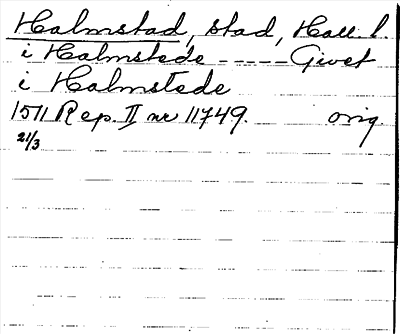 Halmstad, stad, Hall. l.
i Halmstede ----- Givet
i Halmstede
1511 Rep. II nr 11749. orig
21/3